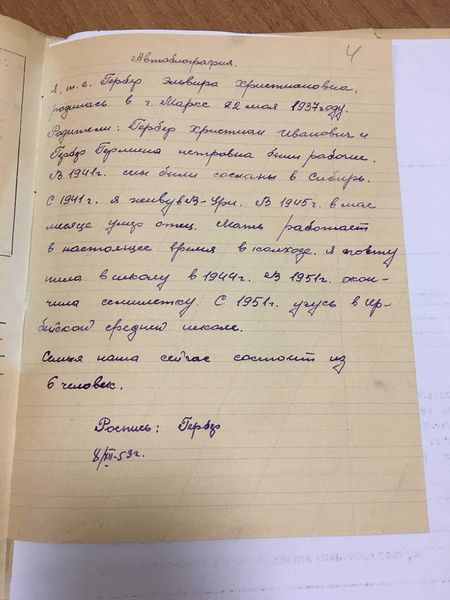 4
Автобиография.
Я, т.е. Гербер Эльвира Християновна,
родилась в г. Маркс 22 мая 1937 году.
Родители: Гербер Християн Иванович и
Гербер Гермина петровна были рабочие.
В 1941г. мы были сосланы в Сибирь.
С 1941г. я живу в В-Ури. В 1945г. в мае
месяце умер отец. Мать работает
в настоящее время в колхозе. Я посту
пила в школу в 1944г. В 1951г. окон-
чила семилетку. С 1951г. учусь в Ир-
бейской средней школе.
Семья наша сейчас состоит из
6 человек.
Роспись: Гербер
8/XII-53г.